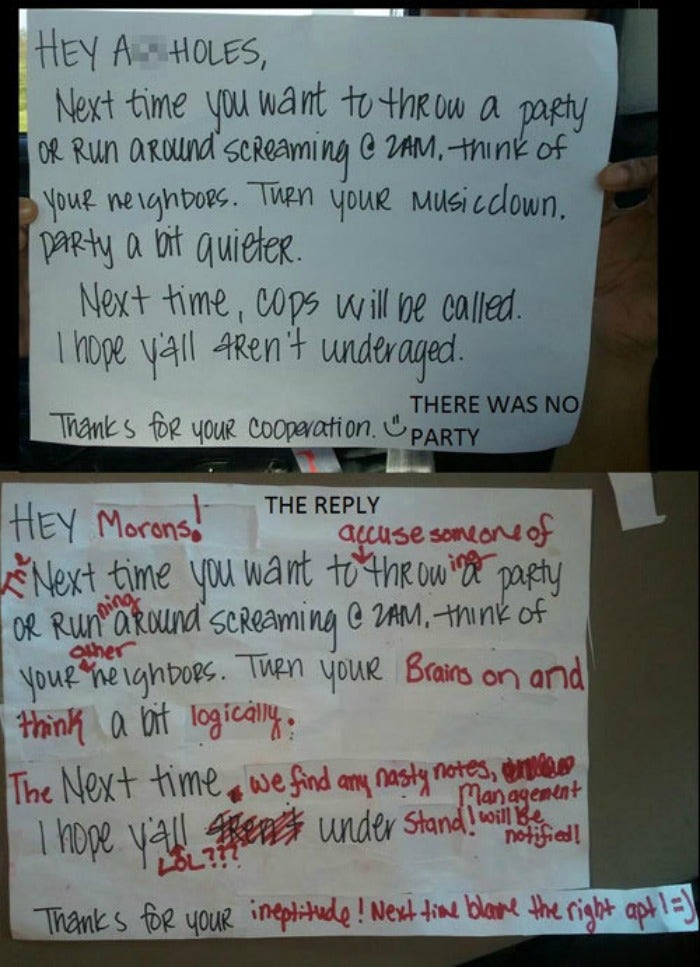 HEY A HOLES,
Next time you want to throw a party
or run around screaming @ 2AM, think of
your neighbors. Turn your music down,
party a bit quieter.
Next time, cops will be called.
I hope y'all aren't underaged.
Thanks for your cooperation.
THERE WAS NO
PARTY
THE REPLY
HEY Morons!
accuse someone of
The Next time you want to throwing a party
or running around screaming @ 2AM, think of
other
your neighbors. Turn your Brains on and
think a bit logically.
The Next time, we find any nasty notes,
Management
I hope y'all aren't under stand! will be
notified!
LOL???
Thanks for your ineptitude! Next time blame the right apt! =)